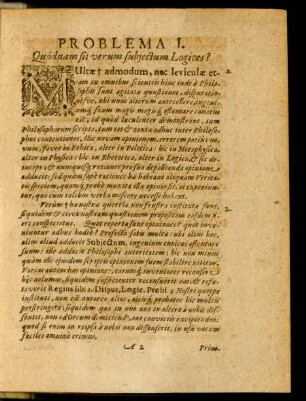 PROBLEMA I.
Quodnam sit verum subjectum Logices?
MUltæ & admodum, nec leviculæ et-
am in omnibus scientiis hinc inde à Philo-
sophis sunt agitatæ quæstiones, disputatio-
nesve, ubi unus alterum antecellere, ingeniumque
suum magis magisque ostentare conatus
est, id quod luculenter demonstrant, tum
Philosophorum scripta, tum tot & tanta adhuc inter Philoso-
phos controversiæ. Hic novam opinionem, errorem potius no-
vum, fovet in Ethica, alter in Politica: hic in Metaphysica,
alter in Physica: hic in Rhetorica, alter in Logica, & sic de-
inceps: &
adducit; sed quoniam sæpè rationes ba habeant aliquam Verita-
tis speciem, quamque probè munita sit opinio, is experiatur,
qui cum talibus verba miscere necesse habent.
Verùm à hæc nostra querela non frustra instituta sunt,
siquidem & circa nostram quæstionem propositam eosdem
reperiri constitutum. Quot reperta sunt opiniones? quot inve-
niuntur adhuc hodie? Profectò satis multæ cùm alius hoc,
alius aliud adducit Subjectum, ingenium enim ostentare
suum: ille adducit Philosophi autoritatem; hic non minus
quàm ille ejusdem scriptis opinionem suam stabilire nititur.
Varias autem has opiniones, earumque inventores recenser-
hic volumus, siquidem sufficienter recensuerit eas & refu-
taverit Regius lib. 1. Disput. Logic. Probl. 3. Nostri quippe
instituti, non est autores alios,
perstringere; siquidem quot in uno aut in altero à nobis dis-
sentit, non ed Orcum dimittend, aut convitiis excipiendus:
quod si enim in reipsa à nobis non dissenserit, in usu vocum
faciles amoinò erimus.
A 2
Prim.